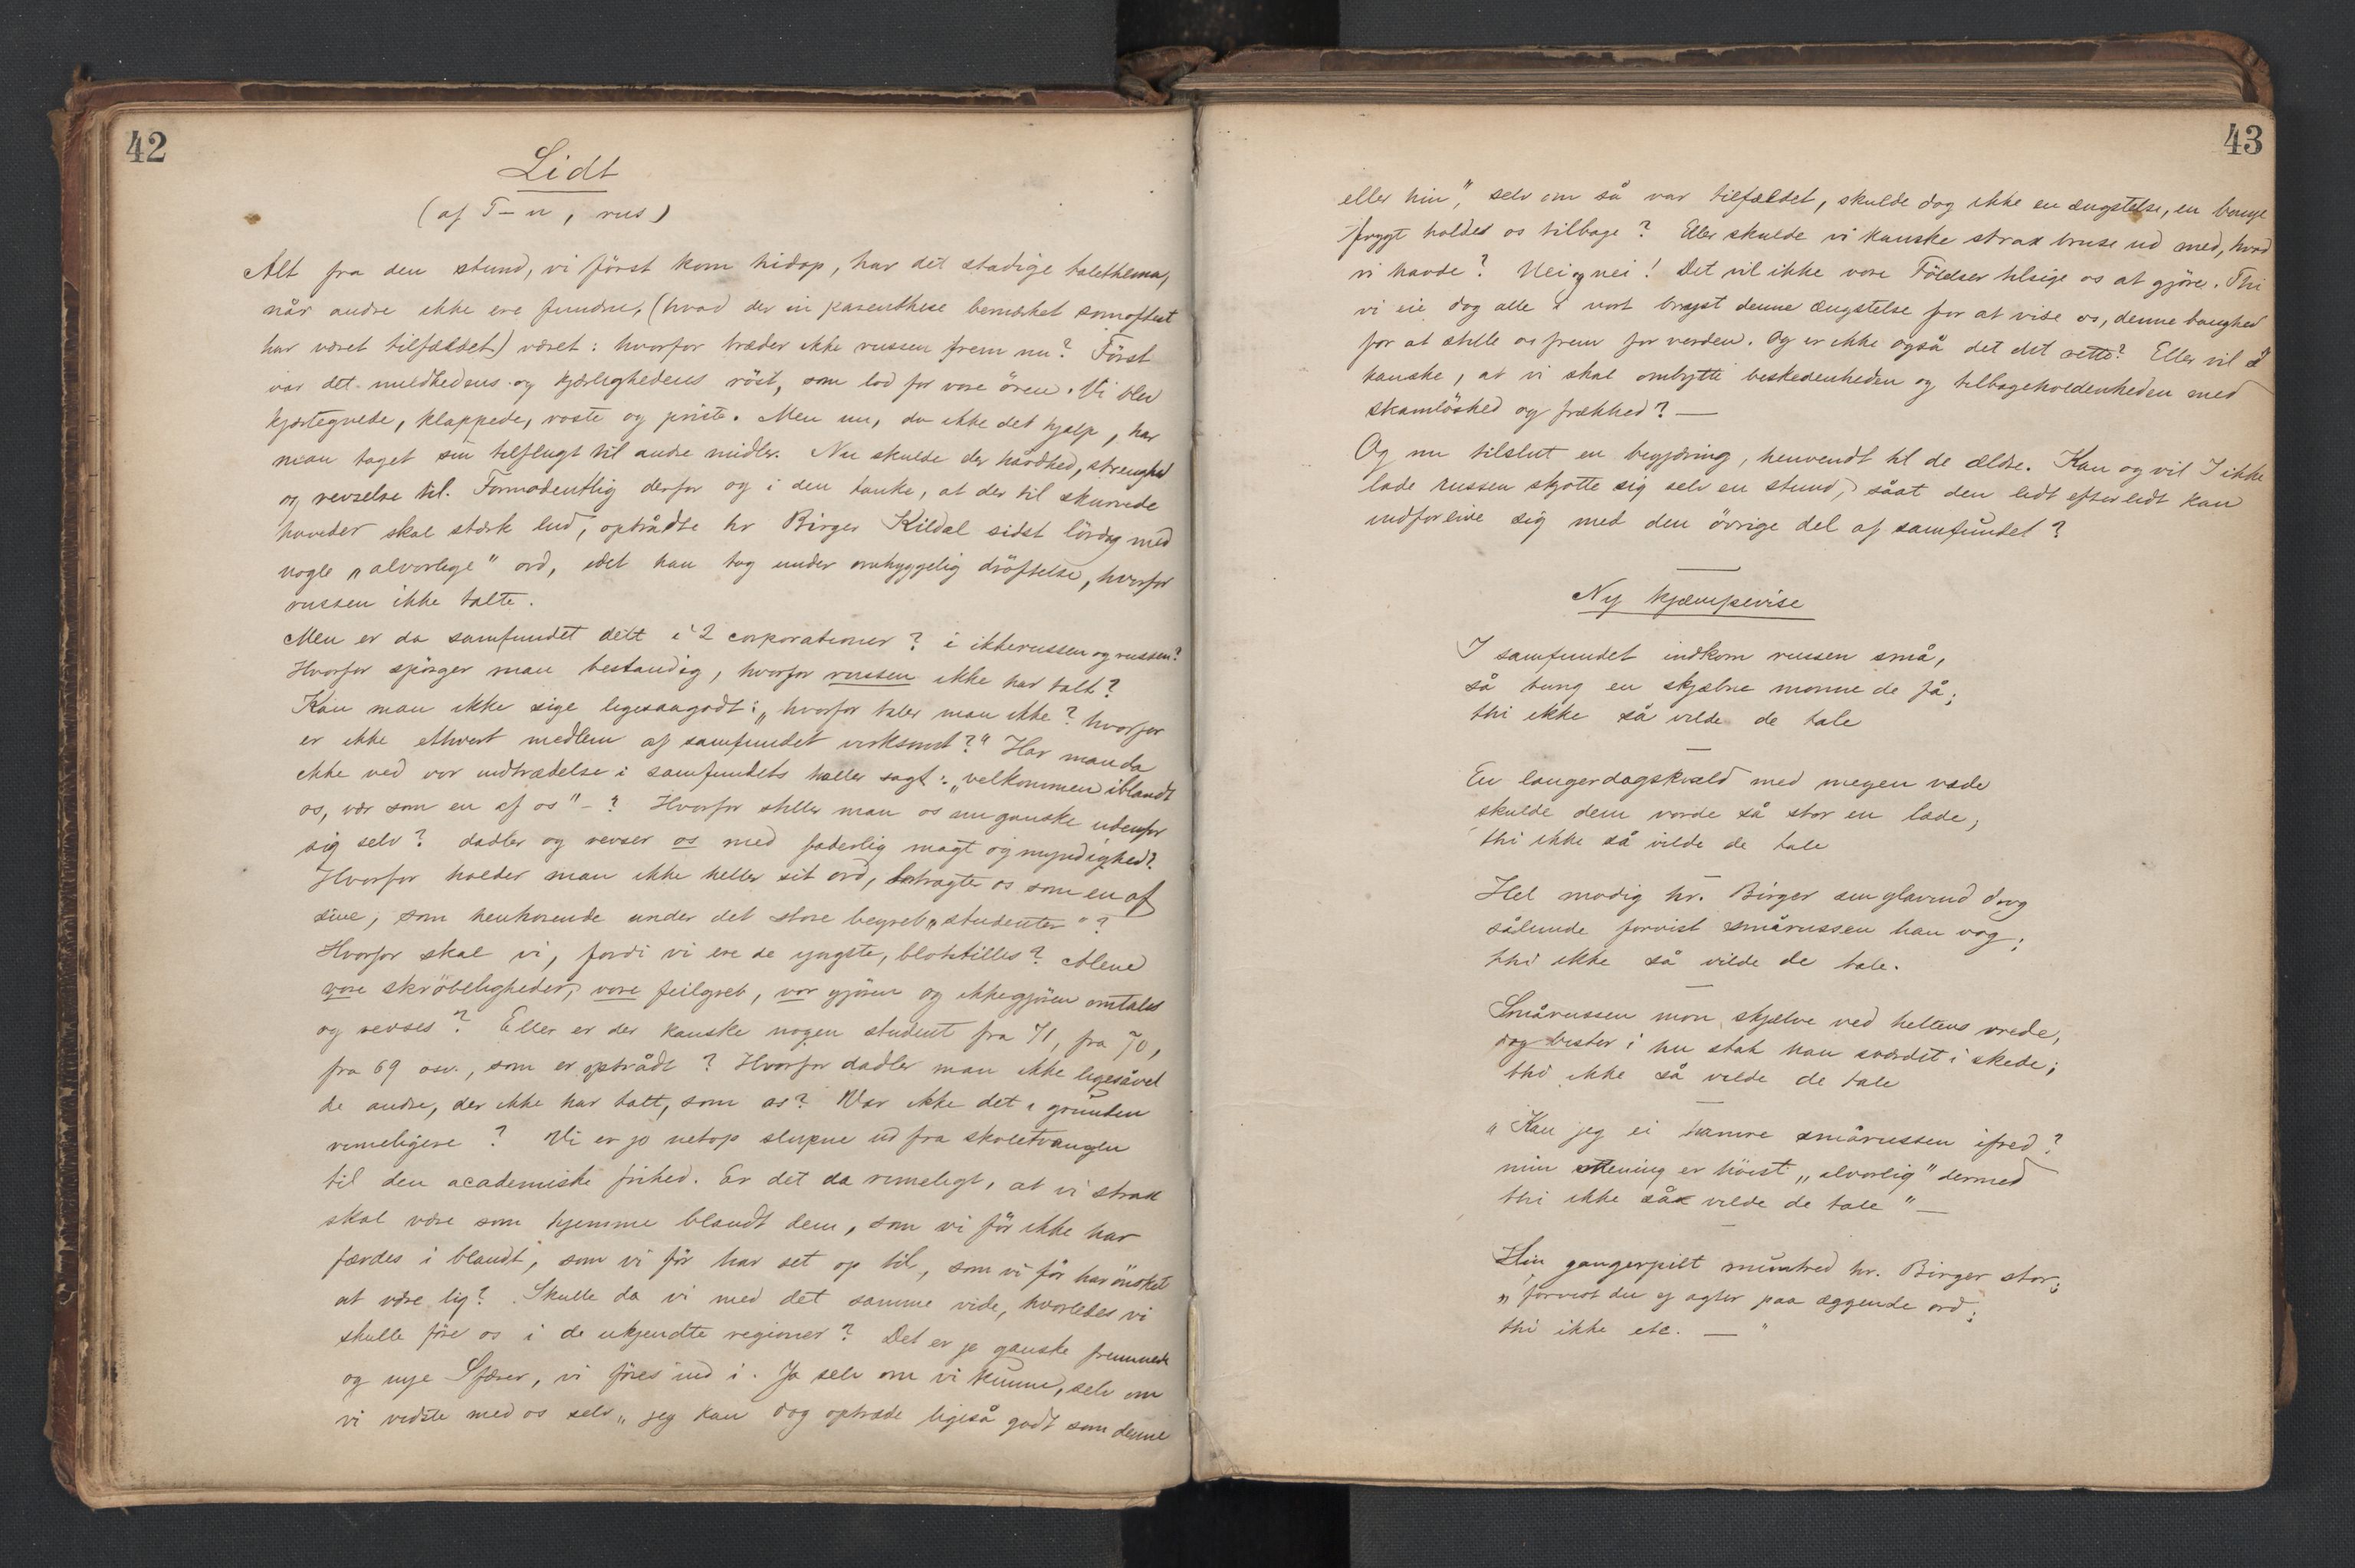 42
Lidt
(af T-n, rus)
Alt fra den stund, vi först kom hidop, har det stadige talethema,
når andre ikke ere fundne, (hvad der in parenthese bemærket somoftest
har været tilfældet) været: hvorfor træder ikke russen frem nu? Först
var det mildhedens og kjærlighedens röst, som lod for vore ören. Vi blev
kjærtegnede, klappede, roste og priste. Men nu, da ikke det hjalp, har
man taget sin tilflugt til andre midler. Nu skulde der hårdhed, strenghed
og revselse til. Formodentlig derfor og i den tanke, at der til skurvede
hoveder skal stærk lud, optrådte hr Birger Kildal sidst lördag med
nogle „alvorlige" ord, idet han tog under omhyggelig dröftelse, hvorfor
russen ikke talte.
Men er da samfundet delt i 2 corporationer? i ikkerussen og russen?
Hvorfor spörger man bestandig, hvorfor russen ikke har talt?
Kan man ikke sige ligesaagodt: „hvorfor taler man ikke? hvorfor
er ikke ethvert medlem af samfundet virksomt?" Har man da
ikke ved vor indtrædelse i samfundets haller sagt: „velkommen iblandt
os, vær som en af os"-? Hvorfor stiller man os nu ganske udenfor
sig selv? dadler og revser os med faderlig magt og myndighed?
Hvorfor holder man ikke heller sit ord, betragter os som en af
sine, som henhörende under det store begreb „studenter"?
Hvorfor skal vi, fordi vi ere de yngste, blotstilles? Alene
vore skröbeligheder, vore feilgreb, vor gjören og ikkegjören omtales
og revses? Eller er der kanske nogen student fra 71, fra 70,
fra 69 osv., som er optrådt? Hvorfor dadler man ikke ligesåvel
de andre, der ikke har talt, som os? Var ikke det i grunden
rimeligere? Vi er jo netop slupne ud fra skoletvangen
til den academiske frihed. Er det da rimeligt, at vi strax
skal være som hjemme blandt dem, som vi för ikke har
færdes i blandt, som vi för har set op til, som vi för har önsket
at være lig? Skulle da vi med det samme vide, hvorledes vi
skulle före os i de ukjendte regioner? Det er jo ganske fremmede
og nye Sfærer, vi föres ind i. Ja selv om vi kunne, selv om
vi vidste med os selv „jeg kan dog optræde ligeså godt som denne
43
eller hin", selv om så var tilfældet, skulde dog ikke en ængstelse, en bange
frygt holdes os tilbage? Eller skulde vi kanske strax bruse ud med, hvad
vi havde? Nei og nei! Det vil ikke vore Fölelser tilsige os at gjöre. Thi
vi eie dog alle i vort bryst denne ængstelse for at vise os, denne banghed
for at stille os frem for verden. Og er ikke også det det rette? Eller vil I
kanske, at vi skal ombytte beskedenheden og tilbageholdenheden med
skamlöshed og frækhed? —
Og nu tilslut en begjæring, henvendt til de ældre. Kan og vil I ikke
lade russen skjøtte sig selv en stund, såat den lidt efter lidt kan
indforlive sig med den övrige del af samfundet?
Ny kjæmpevise
I samfundet indkom russen små,
så tung en skjæbne monne de få;
thi ikke så vilde de tale
En laugerdagskvæld med megen vade
skulde dem vorde så stor en lade;
thi ikke så vilde de tale
Hel modig hr. Birger sin glavind drog
sålunde forvist smårussen han vog;
thi ikke så vilde de tale.
Smårussen mon skjælve ved heltens vrede,
dog bister i hu stak han sværdet i skede;
thi ikke så vilde de tale
„Kan jeg ei tæmme smårussen ifred?
min mening er höist „alvorlig" dermed
thi ikke så vilde de tale" —
Hin gangerpilt mumled hr. Birger stor;
„forvist du ej agter paa æggende ord;
thi ikke etc. — "